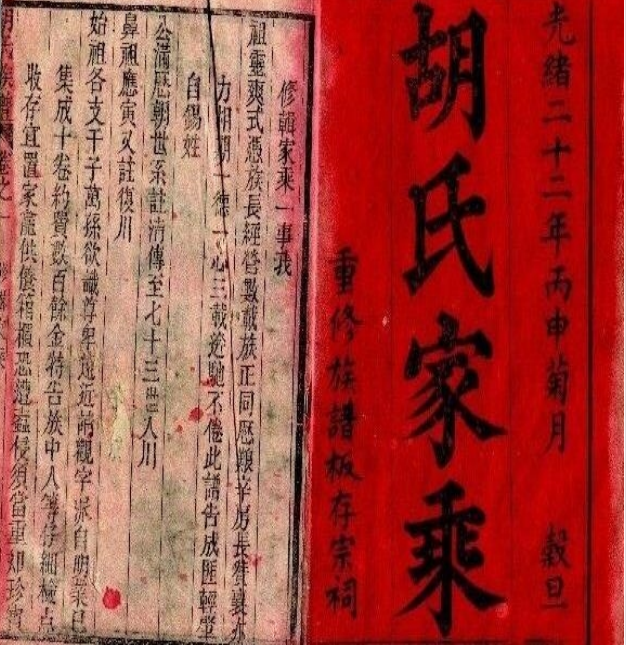 光緒二十二年丙申菊月　穀旦
胡氏家乘
重修族譜板存宗祠
修輯家乘一事我
祖靈爽式憑族長經營數載族正同歷艱辛房長贊襄亦
力胡勷一德一心三載逵馳不倦此譜告成匪輕豎
自錫姓
公滿歷朝世系註清傳至七十三世入川
鼻祖應寅又註復川
始祖各支千子萬孫欲識尊卑遠近請觀字派自明茉已
集成十卷約置數百餘金特告族中人等仔細檢點
收存宜置家龕供儀箱櫃恐遭蟲侵須當重如珍寶
胡氏族譜　卷之一